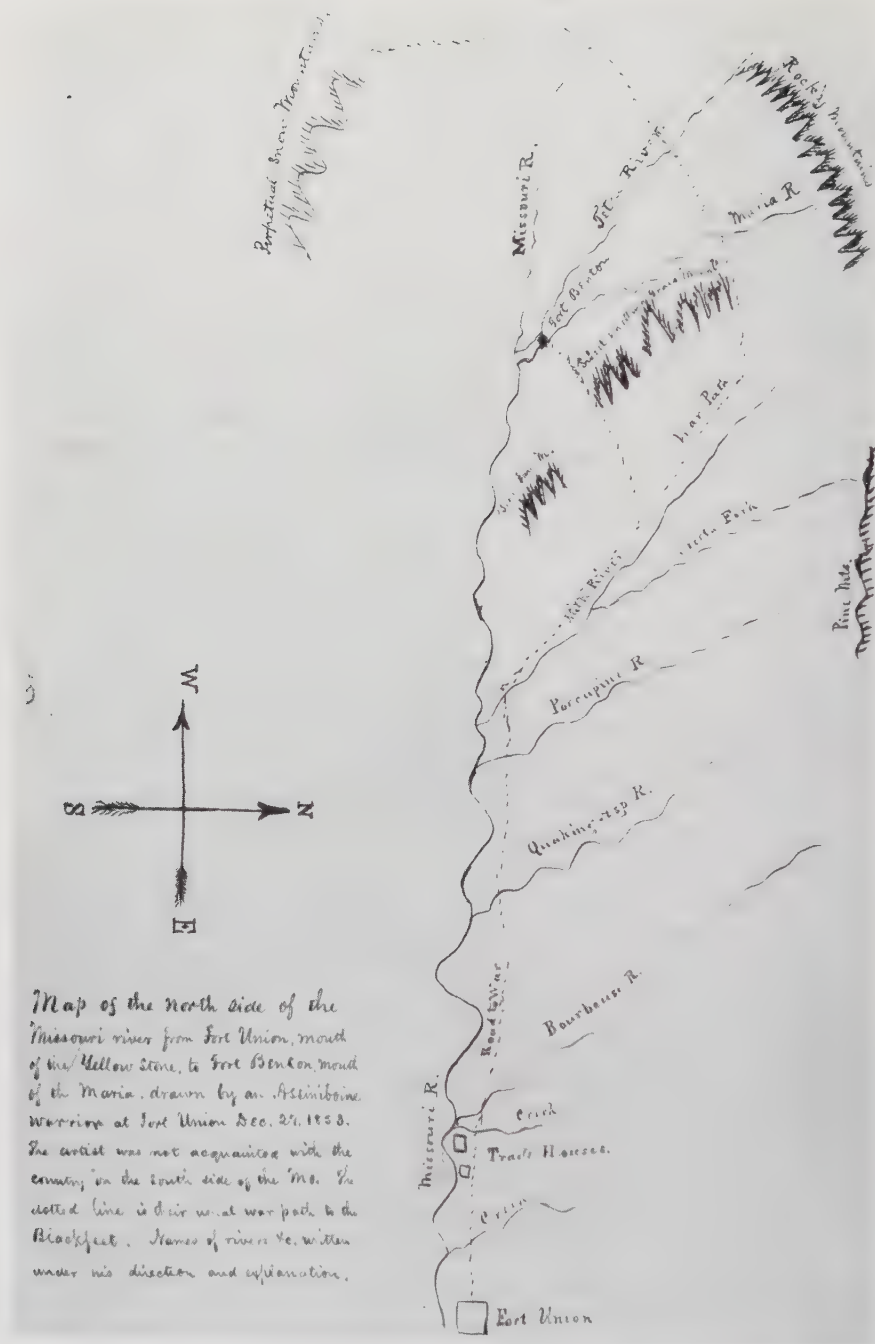 Perpetual Snow Mountains.
Rocky Mountains
Missouri R.
River.
Maria R
Fort Benton
War Path
Fork
Milk River
Pine Mts.
Porcupine R
W
S
N
E
Quaking Asp R.
Road to War
Bourbeuse R.
Missouri R.
Creek
Trade Houses.
Creek
Fort Union
Map of the north side of the
Missouri river from Fort Union, mouth
of the Yellow Stone, to Fort Benton, mouth
of the Maria. drawn by an Assiniboine
warrior at Fort Union Dec. 27. 1853.
The artist was not acquainted with the
country on the south side of the Mo. The
dotted line is their usual war path to the
Blackfeet. Names of rivers &c. written
under his direction and explanation.